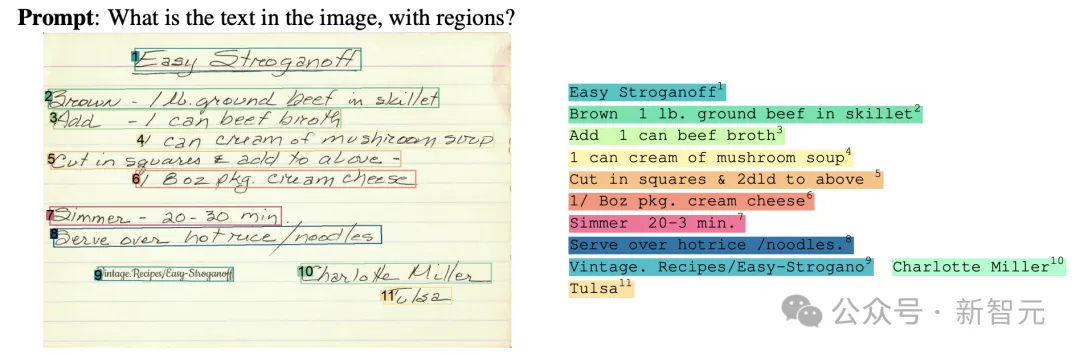 Prompt: What is the text in the image, with regions?
1 Easy Stroganoff
2 Brown - 1 lb. ground beef in skillet
3 Add - 1 can beef broth
4 1 can cream of mushroom soup
5 Cut in squares & add to above -
6 1 8oz pkg. cream cheese
7 Simmer - 20-30 min.
8 Serve over hot rice/noodles
9 Vintage.Recipes/Easy-Stroganoff
10 Charlotte Miller
11 Tulsa
Easy Stroganoff1
Brown 1 lb. ground beef in skillet2
Add 1 can beef broth3
1 can cream of mushroom soup4
Cut in squares & 2dld to above 5
1/ Boz pkg. cream cheese6
Simmer 20-3 min.7
Serve over hotrice /noodles.8
Vintage. Recipes/Easy-Strogano9 Charlotte Miller10
Tulsa11
公众号·新智元